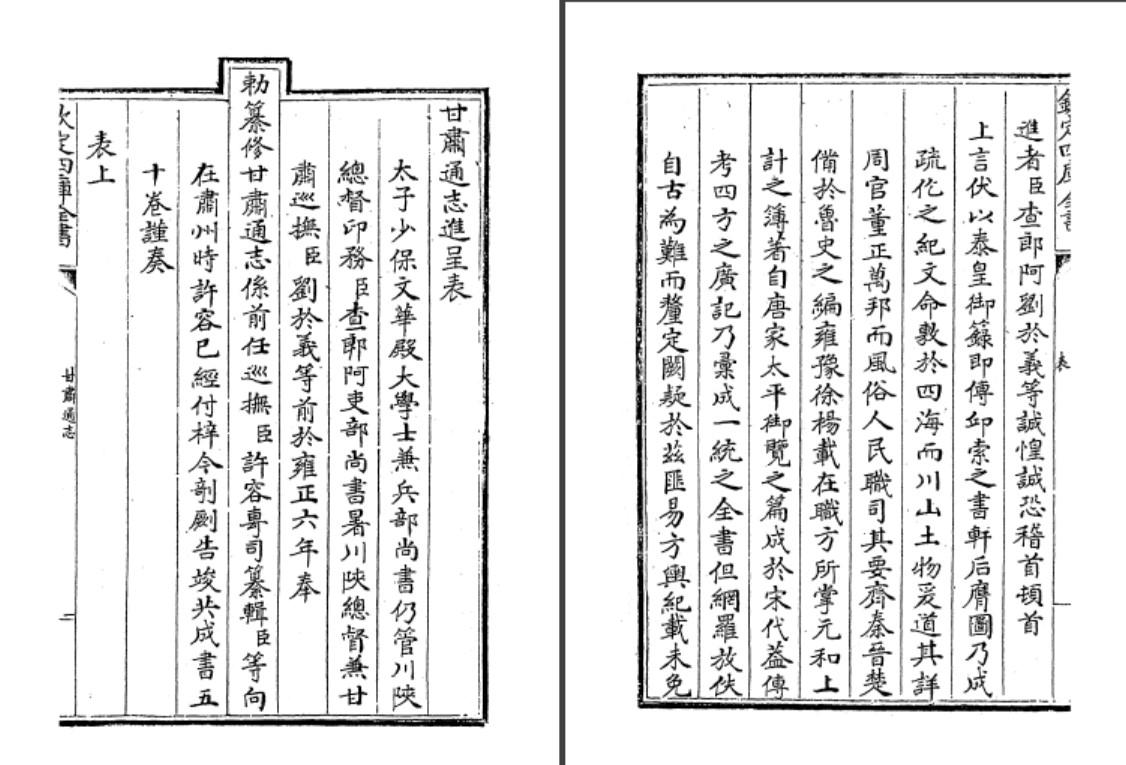 甘肅通志進呈表
太子少保文華殿大學士兼兵部尚書仍管川陜
總督印務臣查郎阿吏部尚書暑川陜總督兼甘
肅巡撫臣劉於義等前於雍正六年奉
勅纂修甘肅通志係前任巡撫臣許容專司纂輯臣等向
在肅州時許容已經付梓今剞劂告竣共成書五
十卷謹奏
表上
欽定四庫全書
甘肅通志
欽定四庫全書
表
進者臣查郎阿劉於義等誠惶誠恐稽首頓首
上言伏以泰皇御籙即傳邱索之書軒后膺圖乃成
疏仡之紀文命敷於四海而川山土物爰道其詳
周官董正萬邦而風俗人民職司其要齊秦晉楚
備於魯史之編雍豫徐楊載在職方所掌元和上
計之簿著自唐家太平御覽之篇成於宋代葢傳
考四方之廣記乃彙成一統之全書但網羅放佚
自古為難而釐定闕疑於兹匪易方輿紀載未免